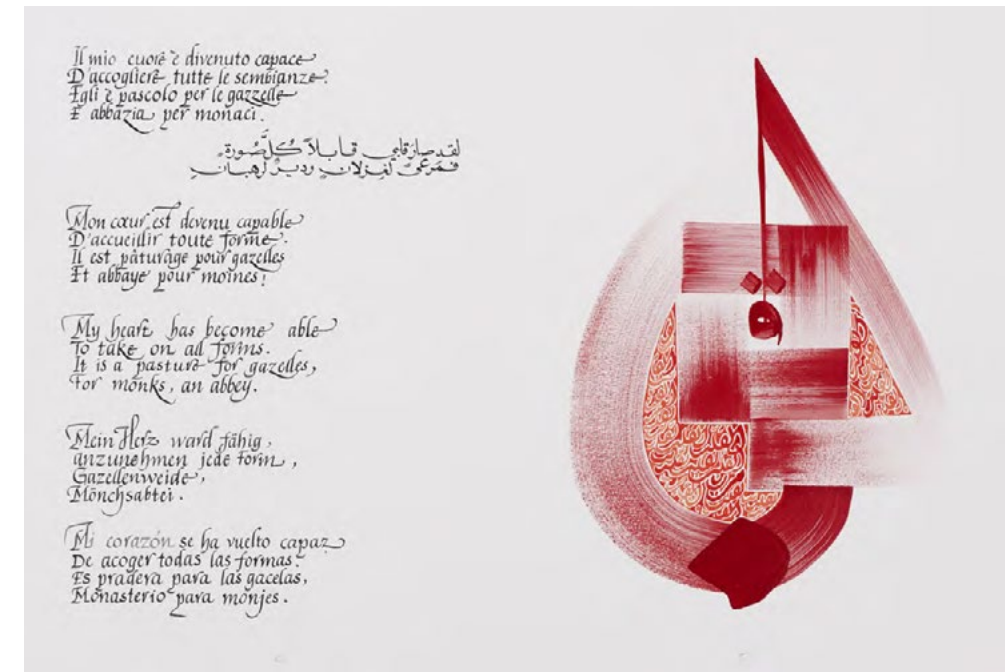 Il mio cuore è divenuto capace
D'accogliere tutte le sembianze.
Egli è pascolo per le gazzelle
E abbazia per monaci.
لقد صار قلبي قابلاً كلَّ صُورةٍ
فمَرعىً لغِزلانٍ وديرٌ لرهبانٍ
Mon cœur est devenu capable
D'accueillir toute forme.
Il est pâturage pour gazelles
Et abbaye pour moines!
My heart has become able
To take on all forms.
It is a pasture for gazelles,
For monks, an abbey.
Mein Herz ward fähig,
anzunehmen jede Form,
Gazellenweide,
Mönchsabtei.
Mi corazón se ha vuelto capaz
De acoger todas las formas.
Es pradera para las gacelas,
Monasterio para monjes.